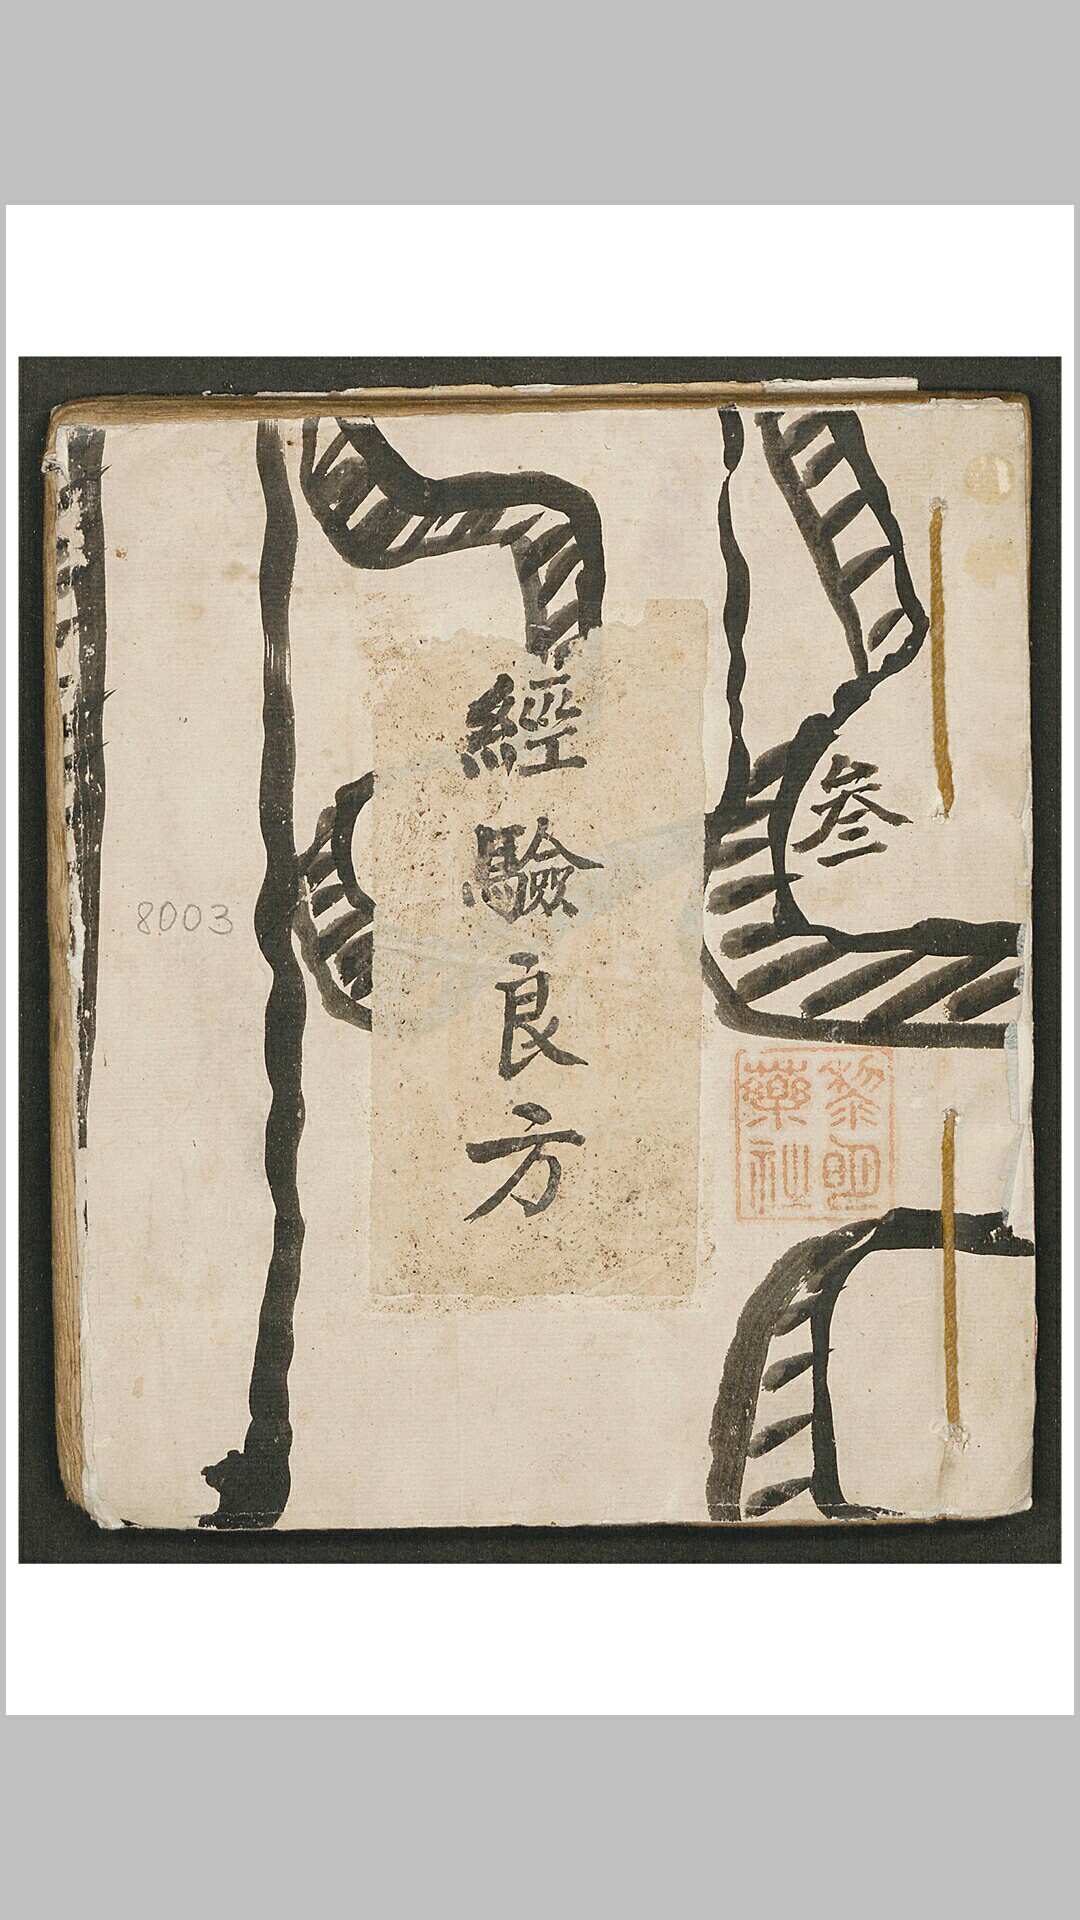 叁
經驗良方
黎明
藥社
8003